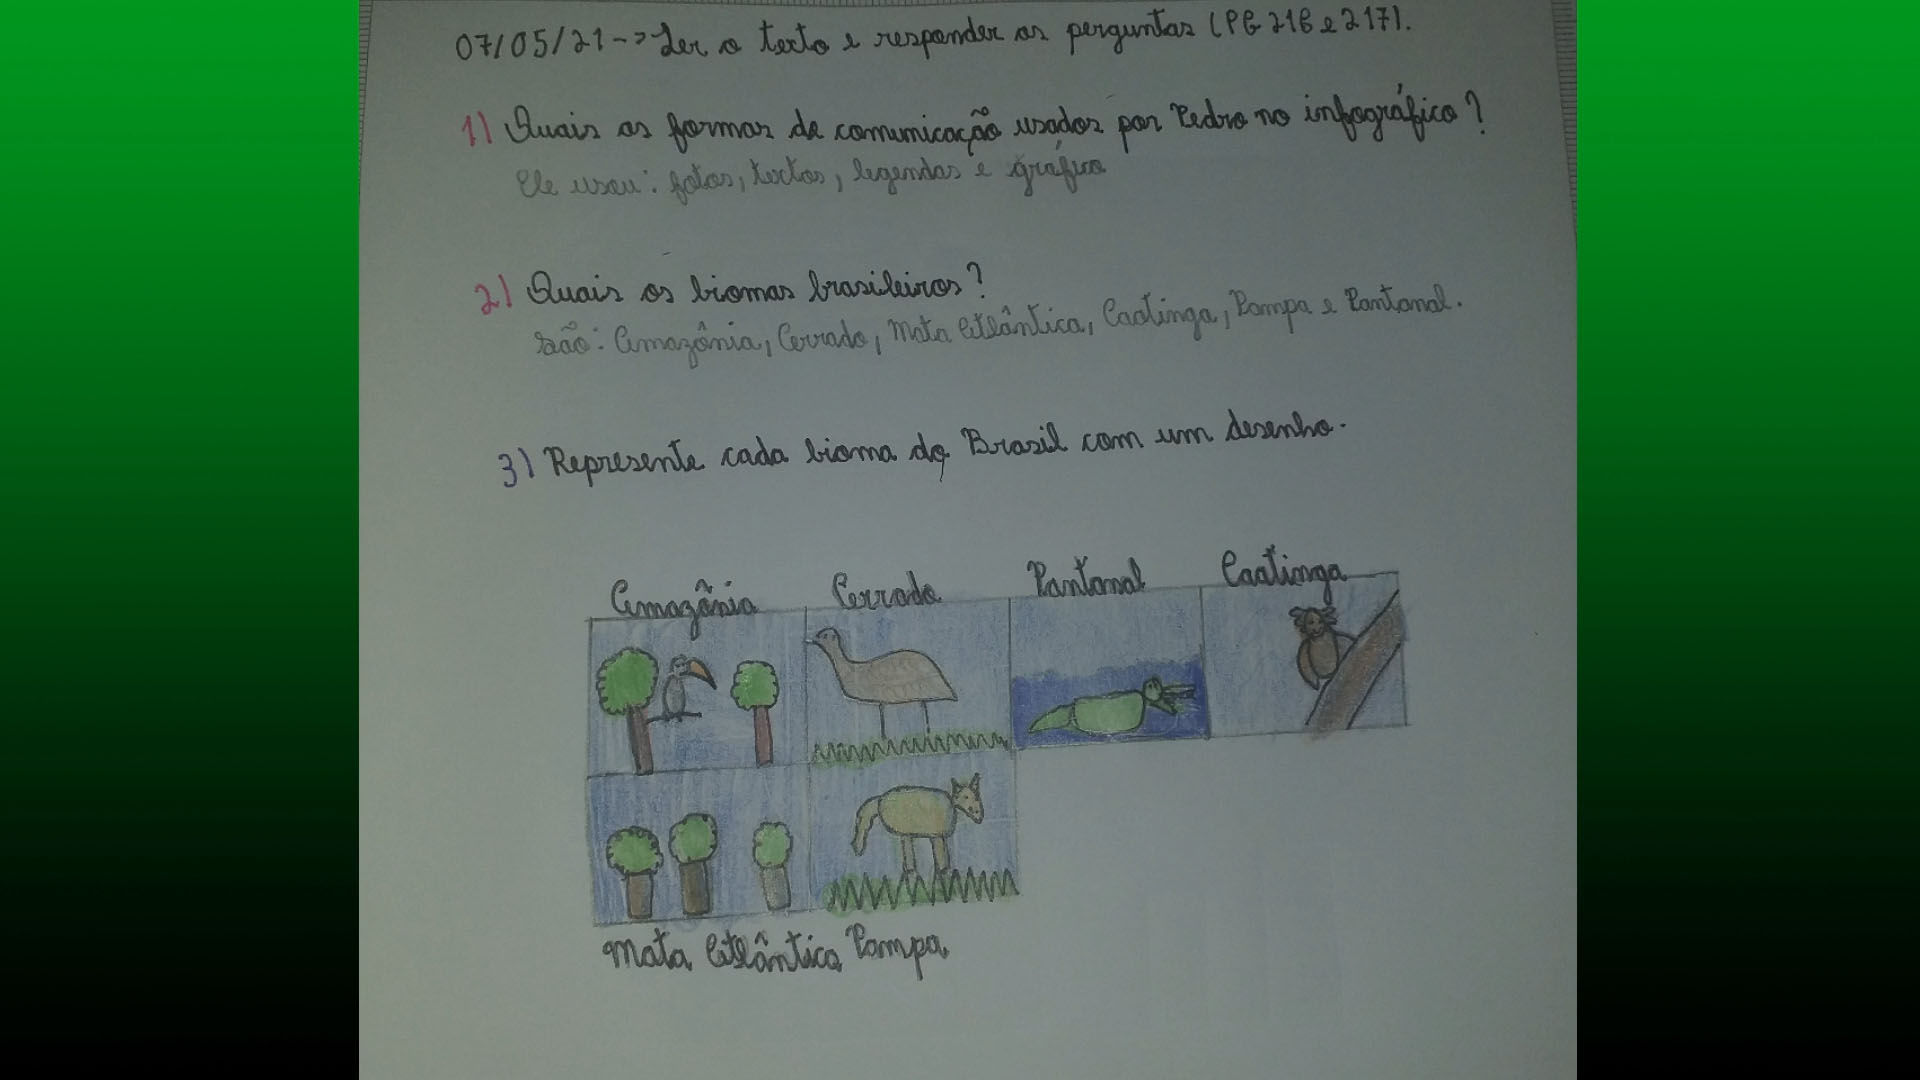 07/05/21 -> Ler o texto e responder as perguntas (PG 216 e 217).
1) Quais as formas de comunicação usadas por Pedro no infográfico?
Ele usou: fotos, textos, legendas e gráfico
2) Quais os biomas brasileiros?
São: Amazônia, Cerrado, Mata Atlântica, Caatinga, Pampa e Pantanal.
3) Represente cada bioma do Brasil com um desenho.
Amazônia Cerrado Pantanal Caatinga
Mata Atlântica Pampa